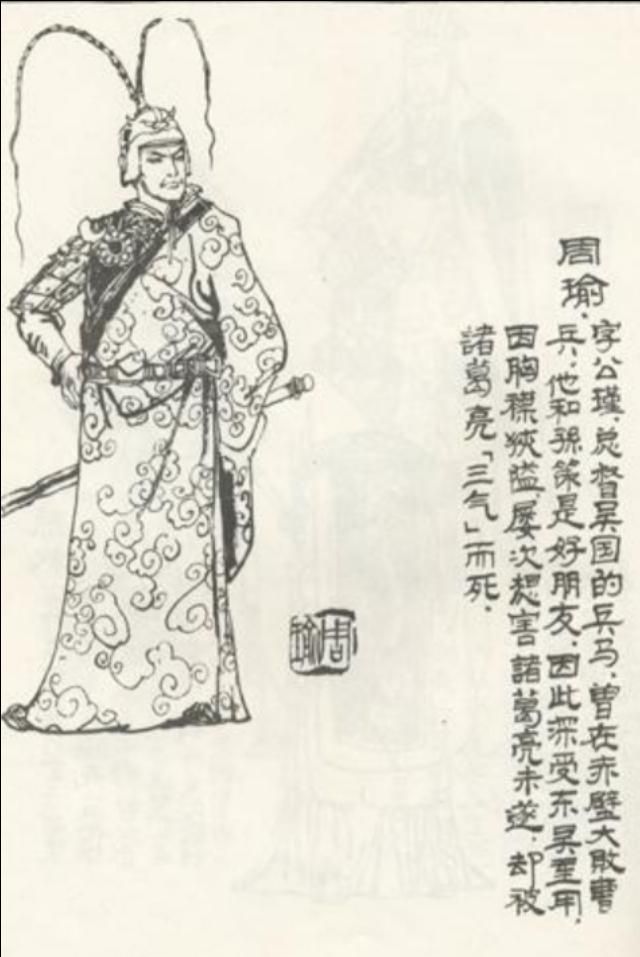 周瑜.
字公瑾.总督吴国的兵马.曾在赤壁大败曹
兵.他和孫策是好朋友.因此深受东吴重用,
因胸襟狹隘,屡次想害諸葛亮未遂,却被
諸葛亮「三气」而死.
周瑜